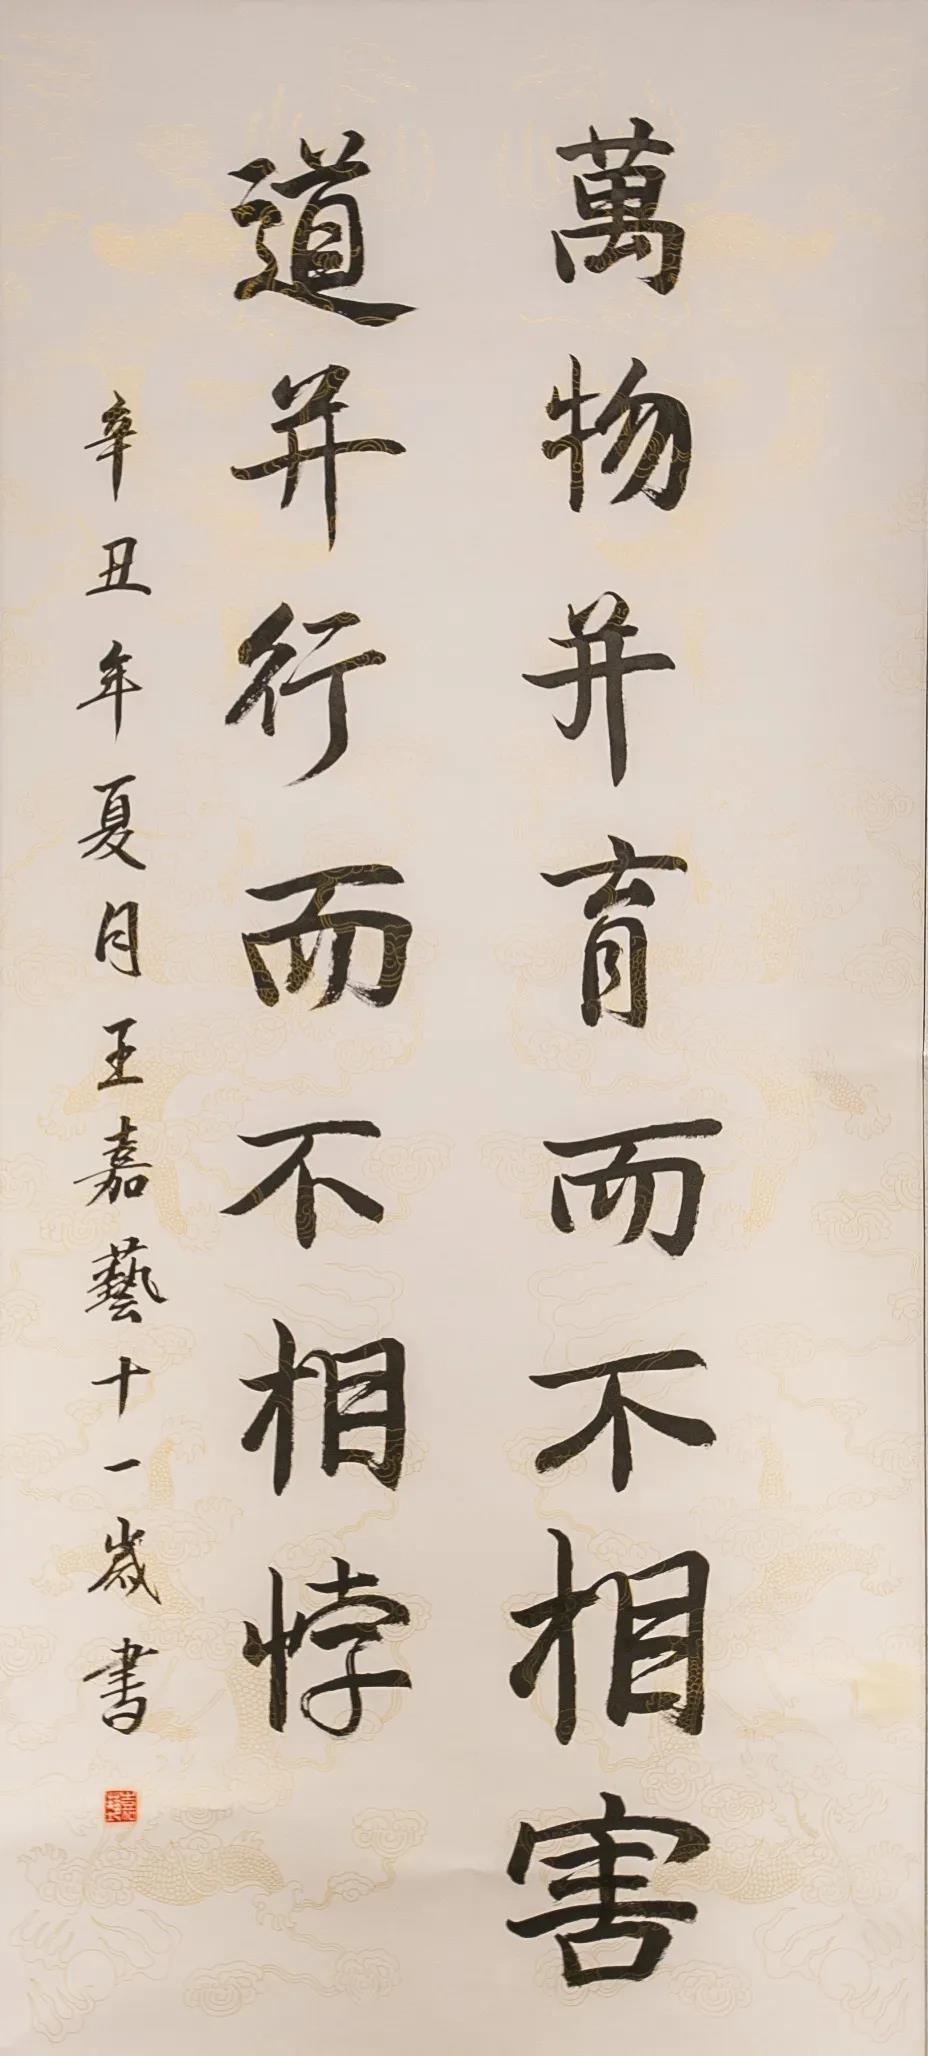 萬物并育而不相害
道并行而不相悖
辛丑年夏月王嘉藝十一歲書
嘉藝